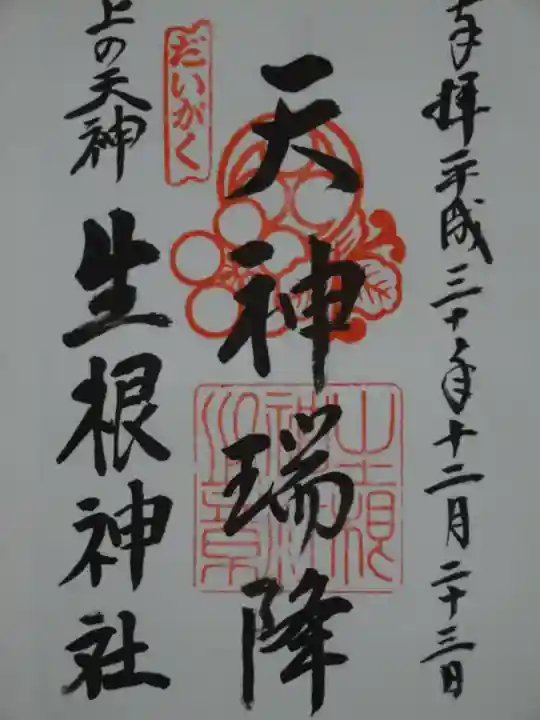 奉拝 平成三十年十二月二十三日
天神瑞降
だいがく
上の天神 生根神社